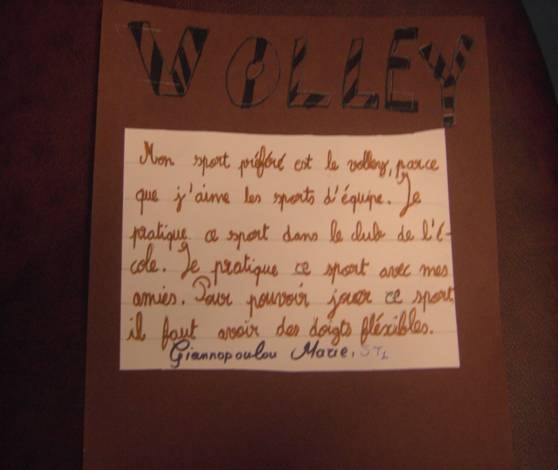 VOLLEY
Mon sport préféré est le volley, parce
que j'aime les sports d'équipe. Je
pratique ce sport dans le club de l'é-
cole. Je pratique ce sport avec mes
amies. Pour pouvoir jouer ce sport
il faut avoir des doigts fléxibles.
Giannopoulou Marie, ST1